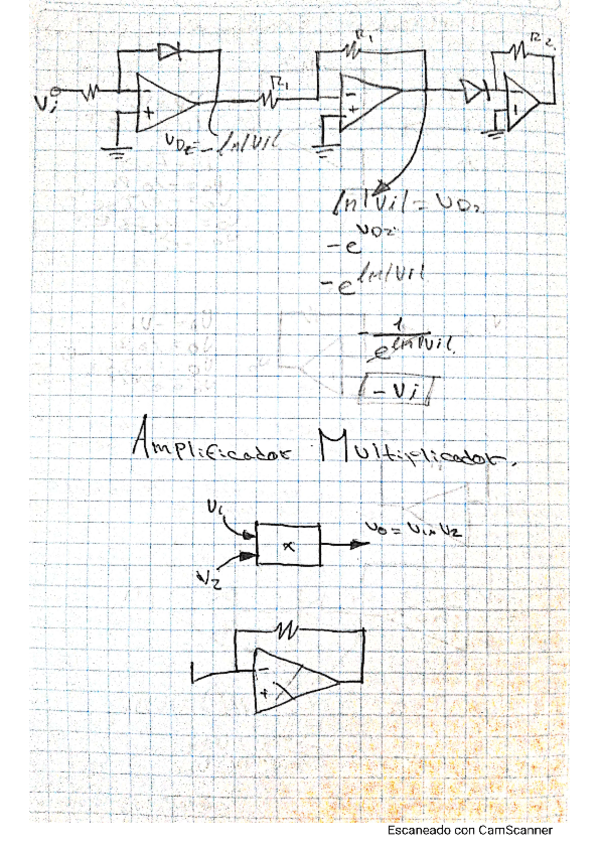 R1
R2
R1
Vi
- + - + -
VD = -ln|Vi|
ln|Vi| = VD2
-e^VD2
-e^ln|Vi|
-1/e^ln|Vi|
-Vi
Amplificador Multiplicador.
V1
x
V2
- +
Escaneado con CamScanner